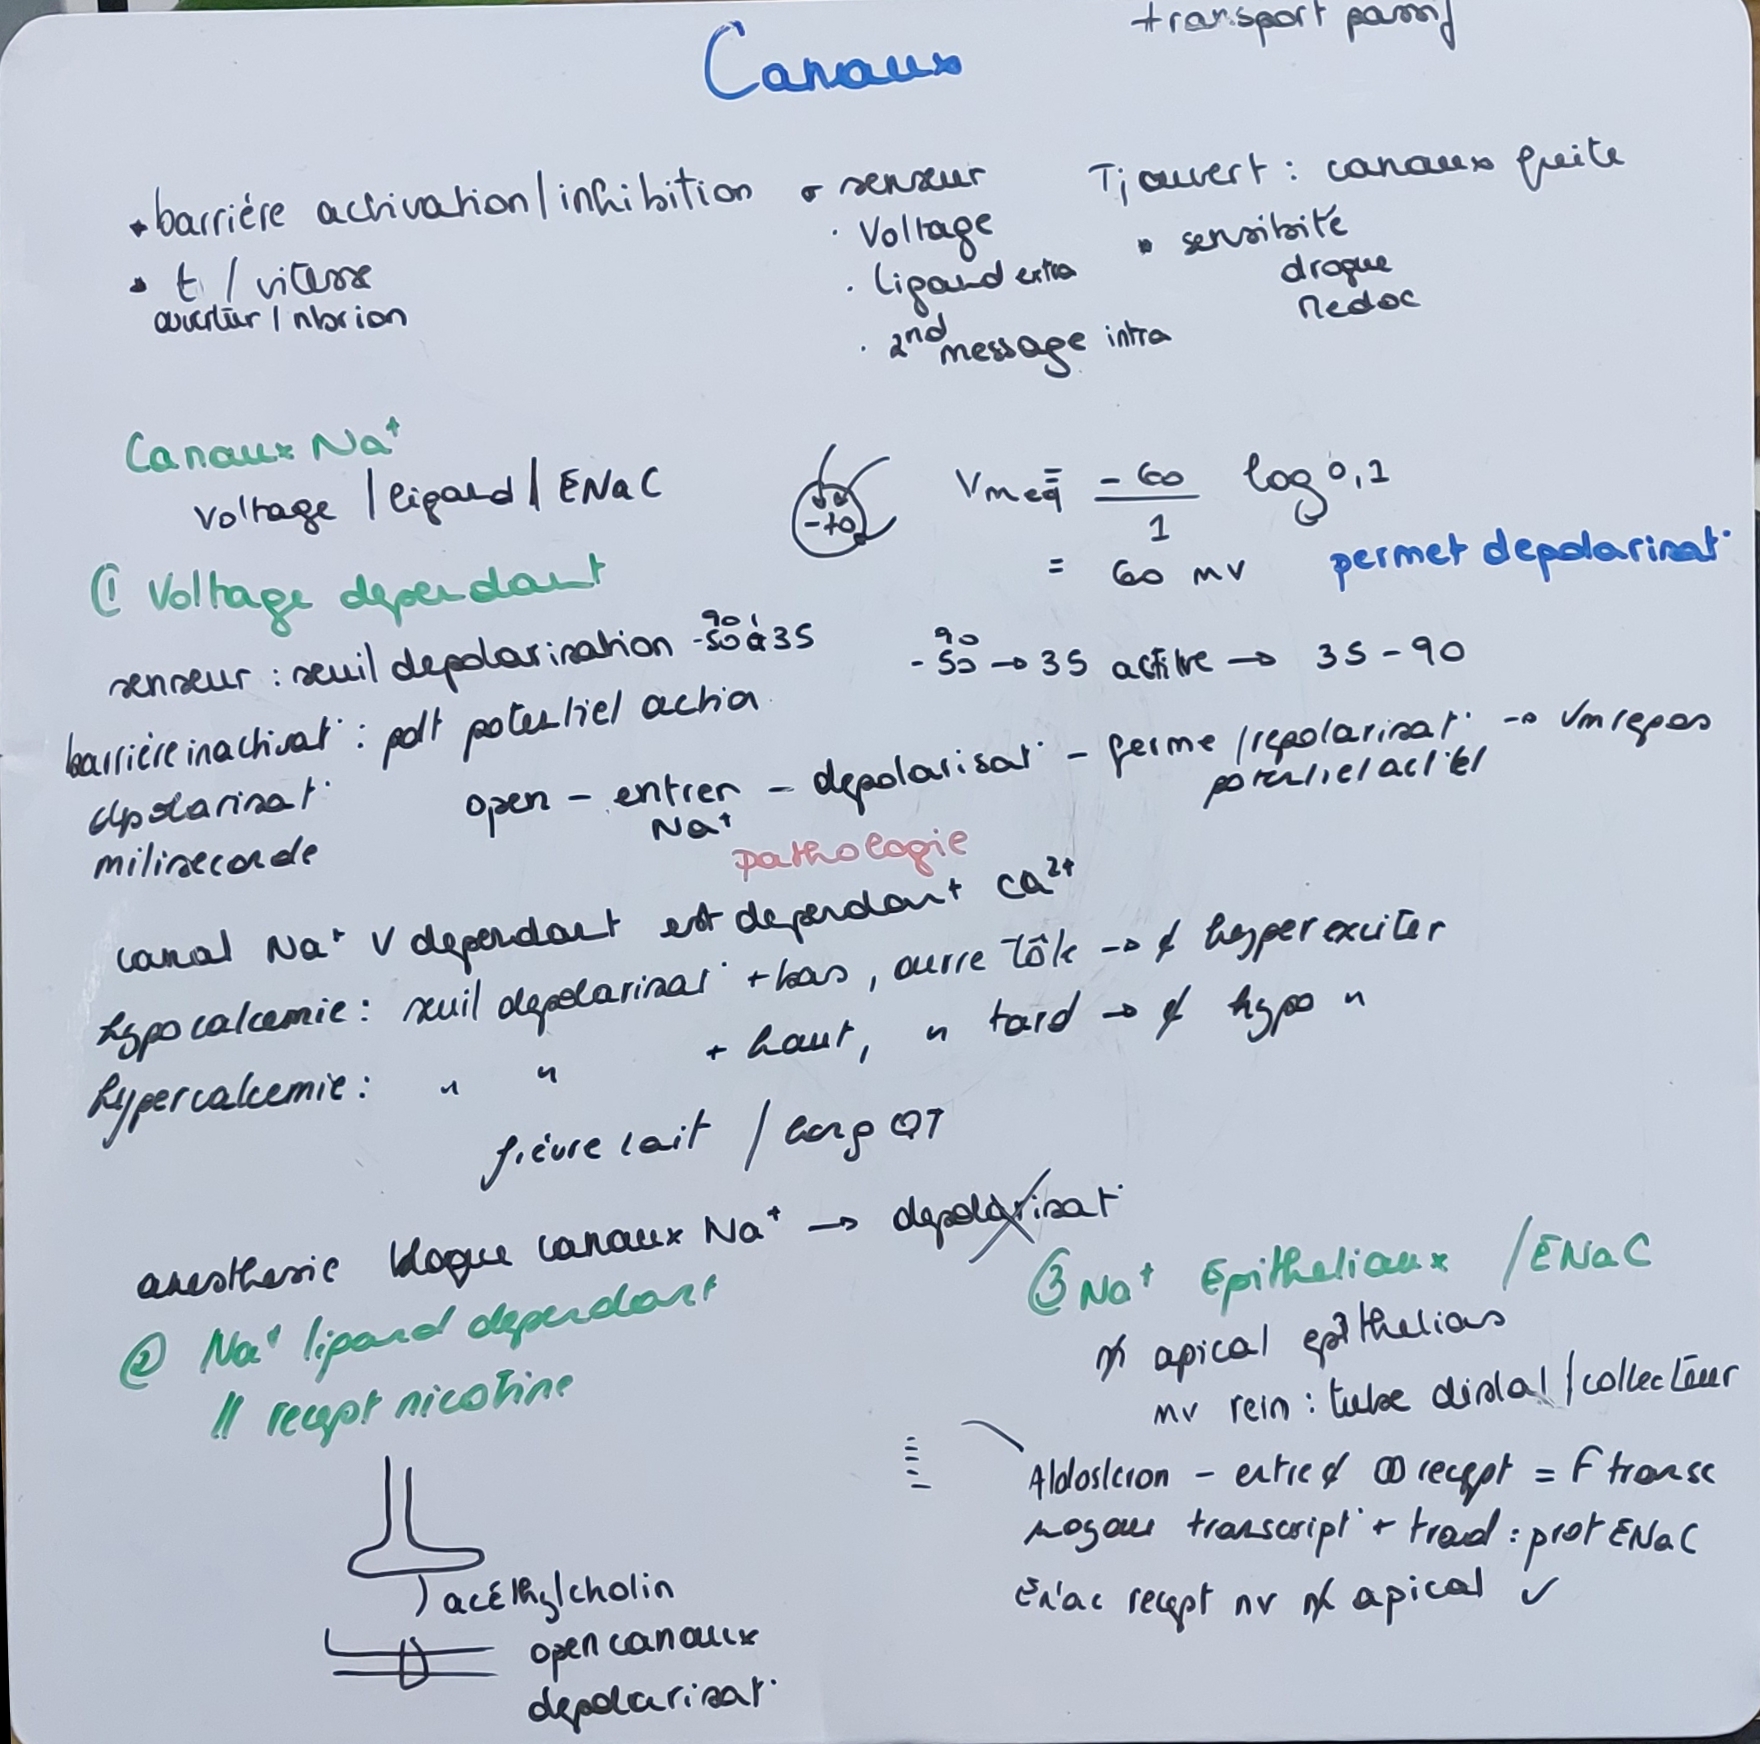 transport passif
Canaux
• barrière activation/inhibition
• t / vitesse
ouvertur / nbr ion
• senseur
· Voltage
· ligand extra
· 2nd message intra
Tj ouvert : canaux fuite
• sensibité
drogue
Medoc
Canaux Na+
Voltage / ligand / ENaC
-70
Vm eq = -60/1 log 0,1
= 60 mv
permet depolarisat°
① Voltage dependant
senseur : seuil depolarisation -50 à 35
90
90
-50 → 35 active → 35 - 90
barrière inactivat° : pdt potentiel action
dpolarisat°
miliseconde
open - entrer - depolarisat° - ferme / repolarisat° → Vm repos
Na+
potentiel act°el
pathologie
canal Na+ V dependant est dependant Ca2+
hypocalcemie : seuil depolarisat° + bas, ouvre tôt → ¢ hyperexciter
hypercalcemie : " " + haut, " tard → ¢ hypo "
fièvre lait / long QT
anesthesie bloque canaux Na+ → depolarisat°
② Na+ ligand dependant
// recept nicotine
acéthylcholin
open canaux
depolarisat°
③ Na+ Epitheliaux / ENaC
apical epithelias
nv rein : tube distal / collecteur
Aldosteron - entre ¢ recept = F transc
noyau transcript° + trad : prot ENaC
Enac recept nv apical ✓